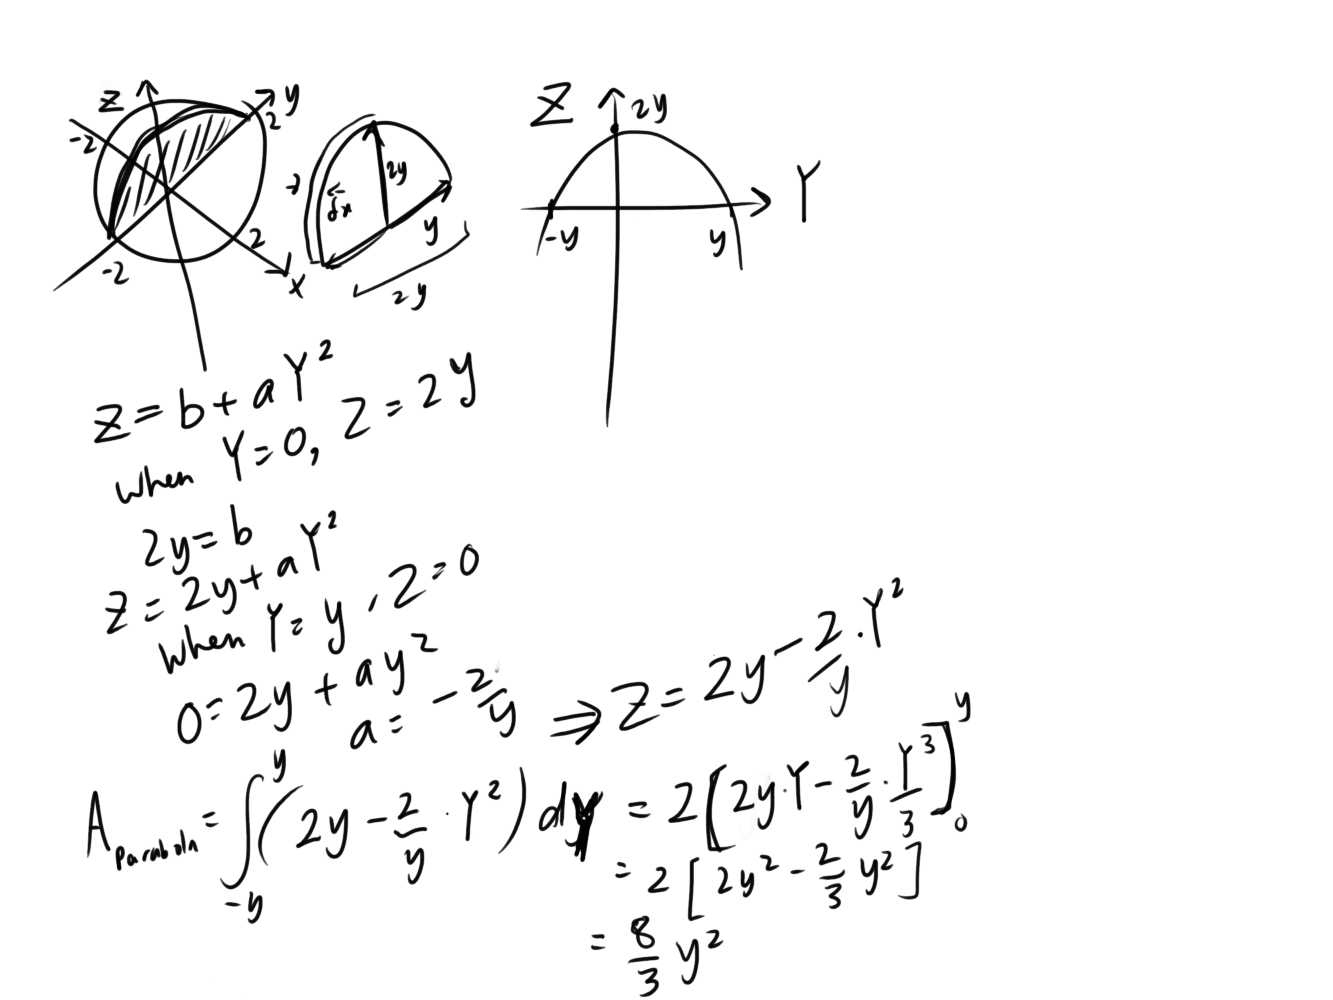 Z y
-2 2
-2 2 x
2y
δx
y
2y
Z 2y
Y
-y y
Z = b + a Y²
when Y = 0, Z = 2y
2y = b
Z = 2y + a Y²
when Y = y, Z = 0
0 = 2y + a y²
a = -2/y ⇒ Z = 2y - 2/y · Y²
A Parabola = ∫_{-y}^{y} (2y - 2/y · Y²) dY = 2[2y·Y - 2/y · Y³/3]_0^y
= 2[2y² - 2/3 y²]
= 8/3 y²